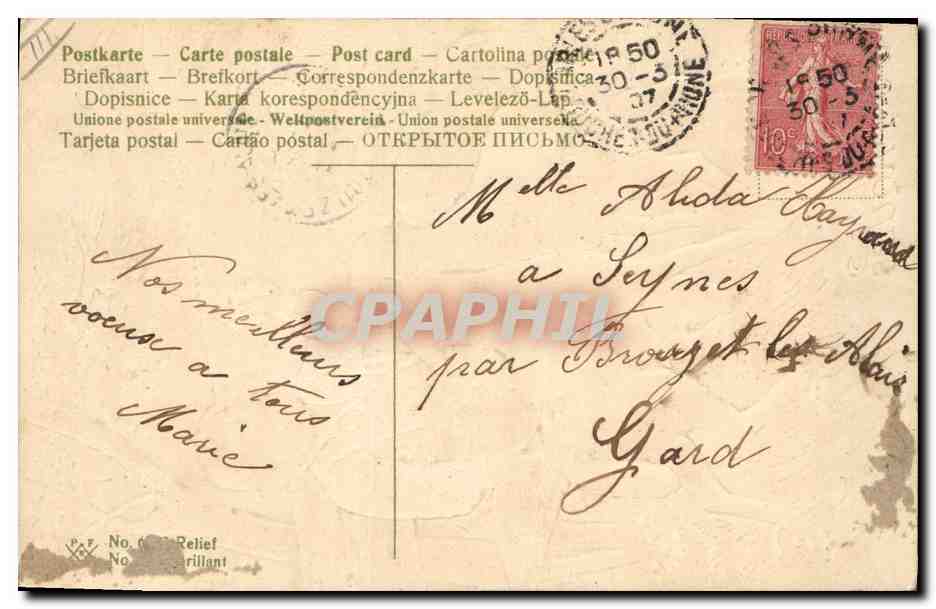 Postkarte — Carte postale — Post card — Cartolina postale
Briefkaart — Brefkort — Correspondenzkarte — Dopisnica
Dopisnice — Karta korespondencyjna — Levelező-Lap
Unione postale universale - Weltpostverein - Union postale universelle
Tarjeta postal — Cartão postal — ОТКРЫТОЕ ПИСЬМО
18 50
30 - 3
07
18 50
30 - 3
10c
Melle Alida
a Seynes
par Brouzet les Alais
Gard
Nos meilleurs
voeux a tous
Marie
CPAPHIL
P. F.
No. Relief
No. Brillant